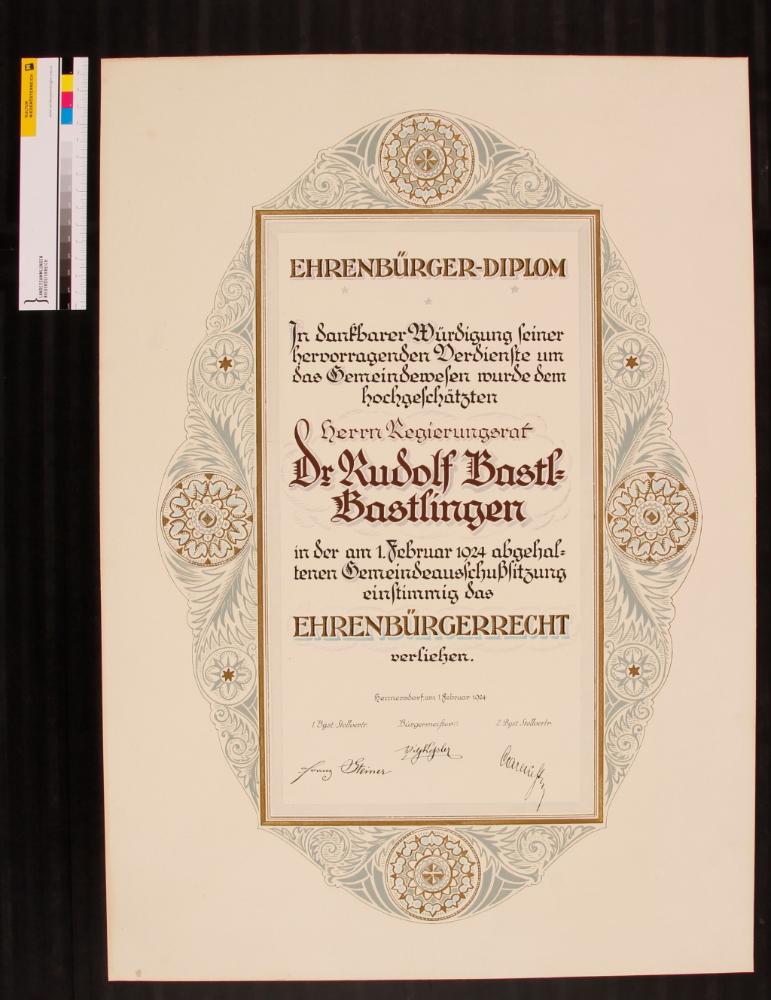 KULTUR
NIEDERÖSTERREICH
LANDESSAMMLUNGEN
NIEDERÖSTERREICH
EHRENBÜRGER-DIPLOM
In dankbarer Würdigung seiner
hervorragenden Verdienste um
das Gemeindewesen wurde dem
hochgeschätzten
Herrn Regierungsrat
Dr Rudolf Bastl-
Bastlingen
in der am 1. Februar 1924 abgehal-
tenen Gemeindeausschußsitzung
einstimmig das
EHRENBÜRGERRECHT
verliehen.
Hennersdorf, am 1. Februar 1924
1. Bgst. Stellvertr. Bürgermeister: 2. Bgst. Stellvertr.
Franz Steiner